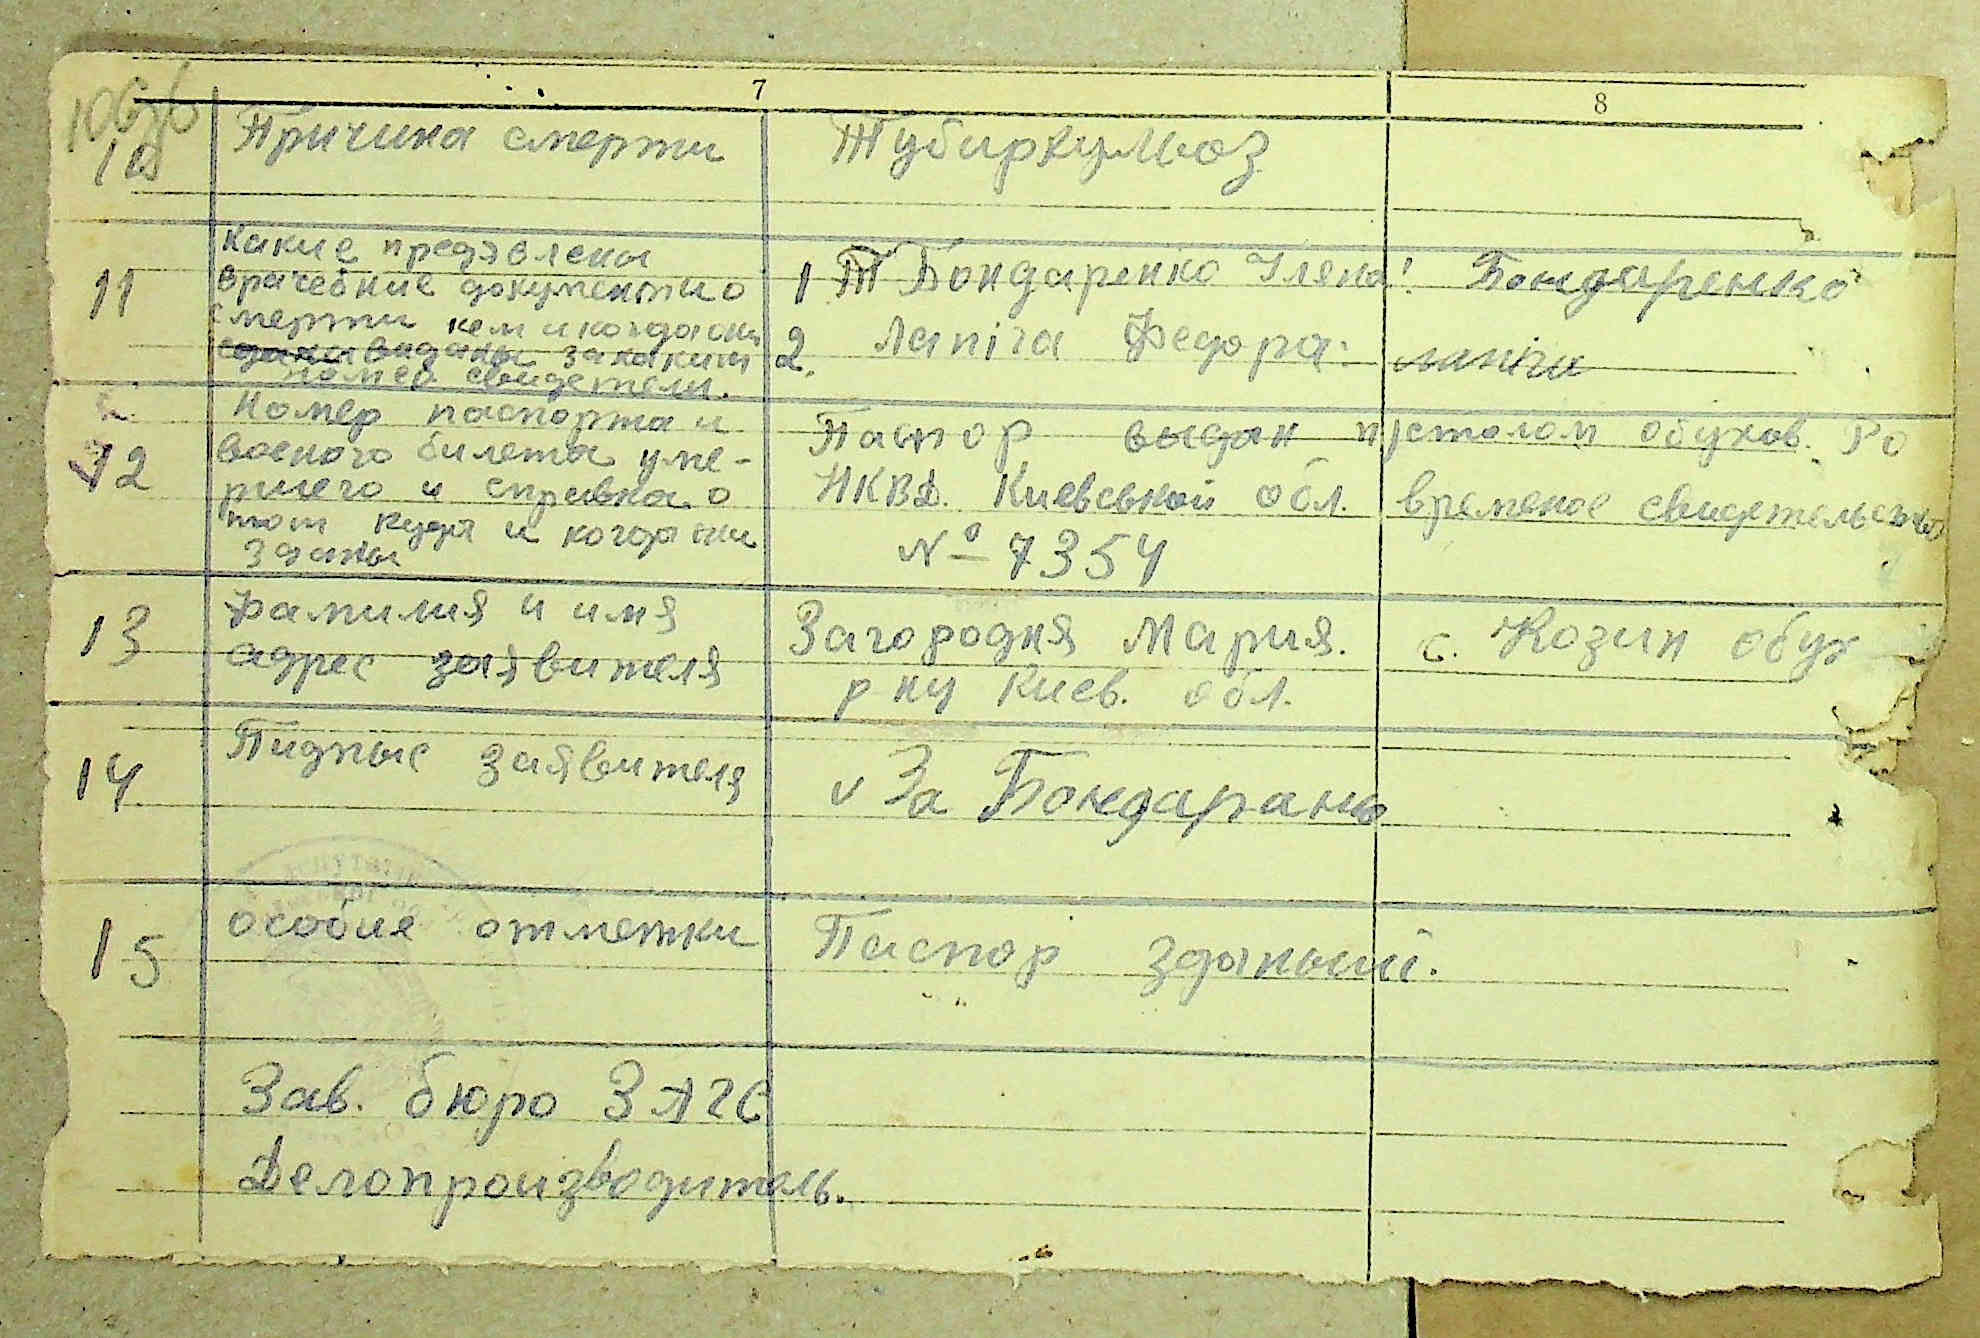 7 8
10 Причина смерти Тубиркульоз
Какие предявлены
11 врачебние документи о
смерти кем и когда они
выданы за каким
номер. свидетели.
1 Т Бондаренко Іляна! Бондаренко
2. Лапіга Федора: лапіги
Номер паспорта и
12 военого билета уме-
ршего и справка о
том куда и когда они
зданы
Паспор выдан п/столом обухов. РО
НКВД. Киевськой обл. временое свидетельство
№ 7354
13 Фамилия и имя
адрес заявителя
Загородня Мария. с. Козин обух
р ну Киев. обл.
14 Пидпыс заявителя v За Бондарань
15 особие отметки Паспор зданый.
Зав. бюро ЗАГС
Делопроизводитель.